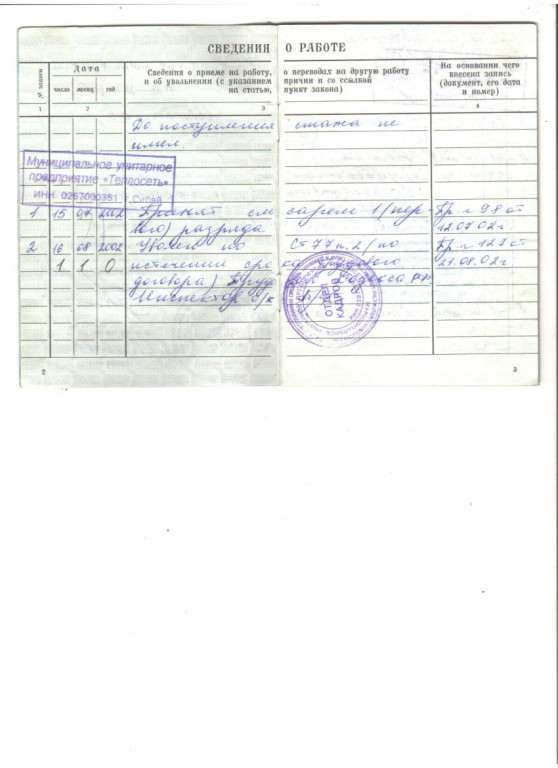 СВЕДЕНИЯ О РАБОТЕ
№ записи
Дата
число месяц год
Сведения о приеме на работу, о переводах на другую работу
и об увольнении (с указанием причин и со ссылкой
на статью, пункт закона)
На основании чего
внесена запись
(документ, его дата
и номер)
1 2 3 4
До поступления стажа не
имел.
Муниципальное унитарное
предприятие «Теплосеть»
ИНН 0267000351 г.Сибай
1 15 07 2002 Принят слесарем 1 (пер- Пр. № 98 от
вого) разряда 12.07.02г
2 16 08 2002 Уволен по Ст 77 п. 2 (по Пр. № 127 от
1 1 0 истечении срока трудового 21.08.02г
договора)
Инспектор о/к
ОТДЕЛ
КАДРОВ
2 3